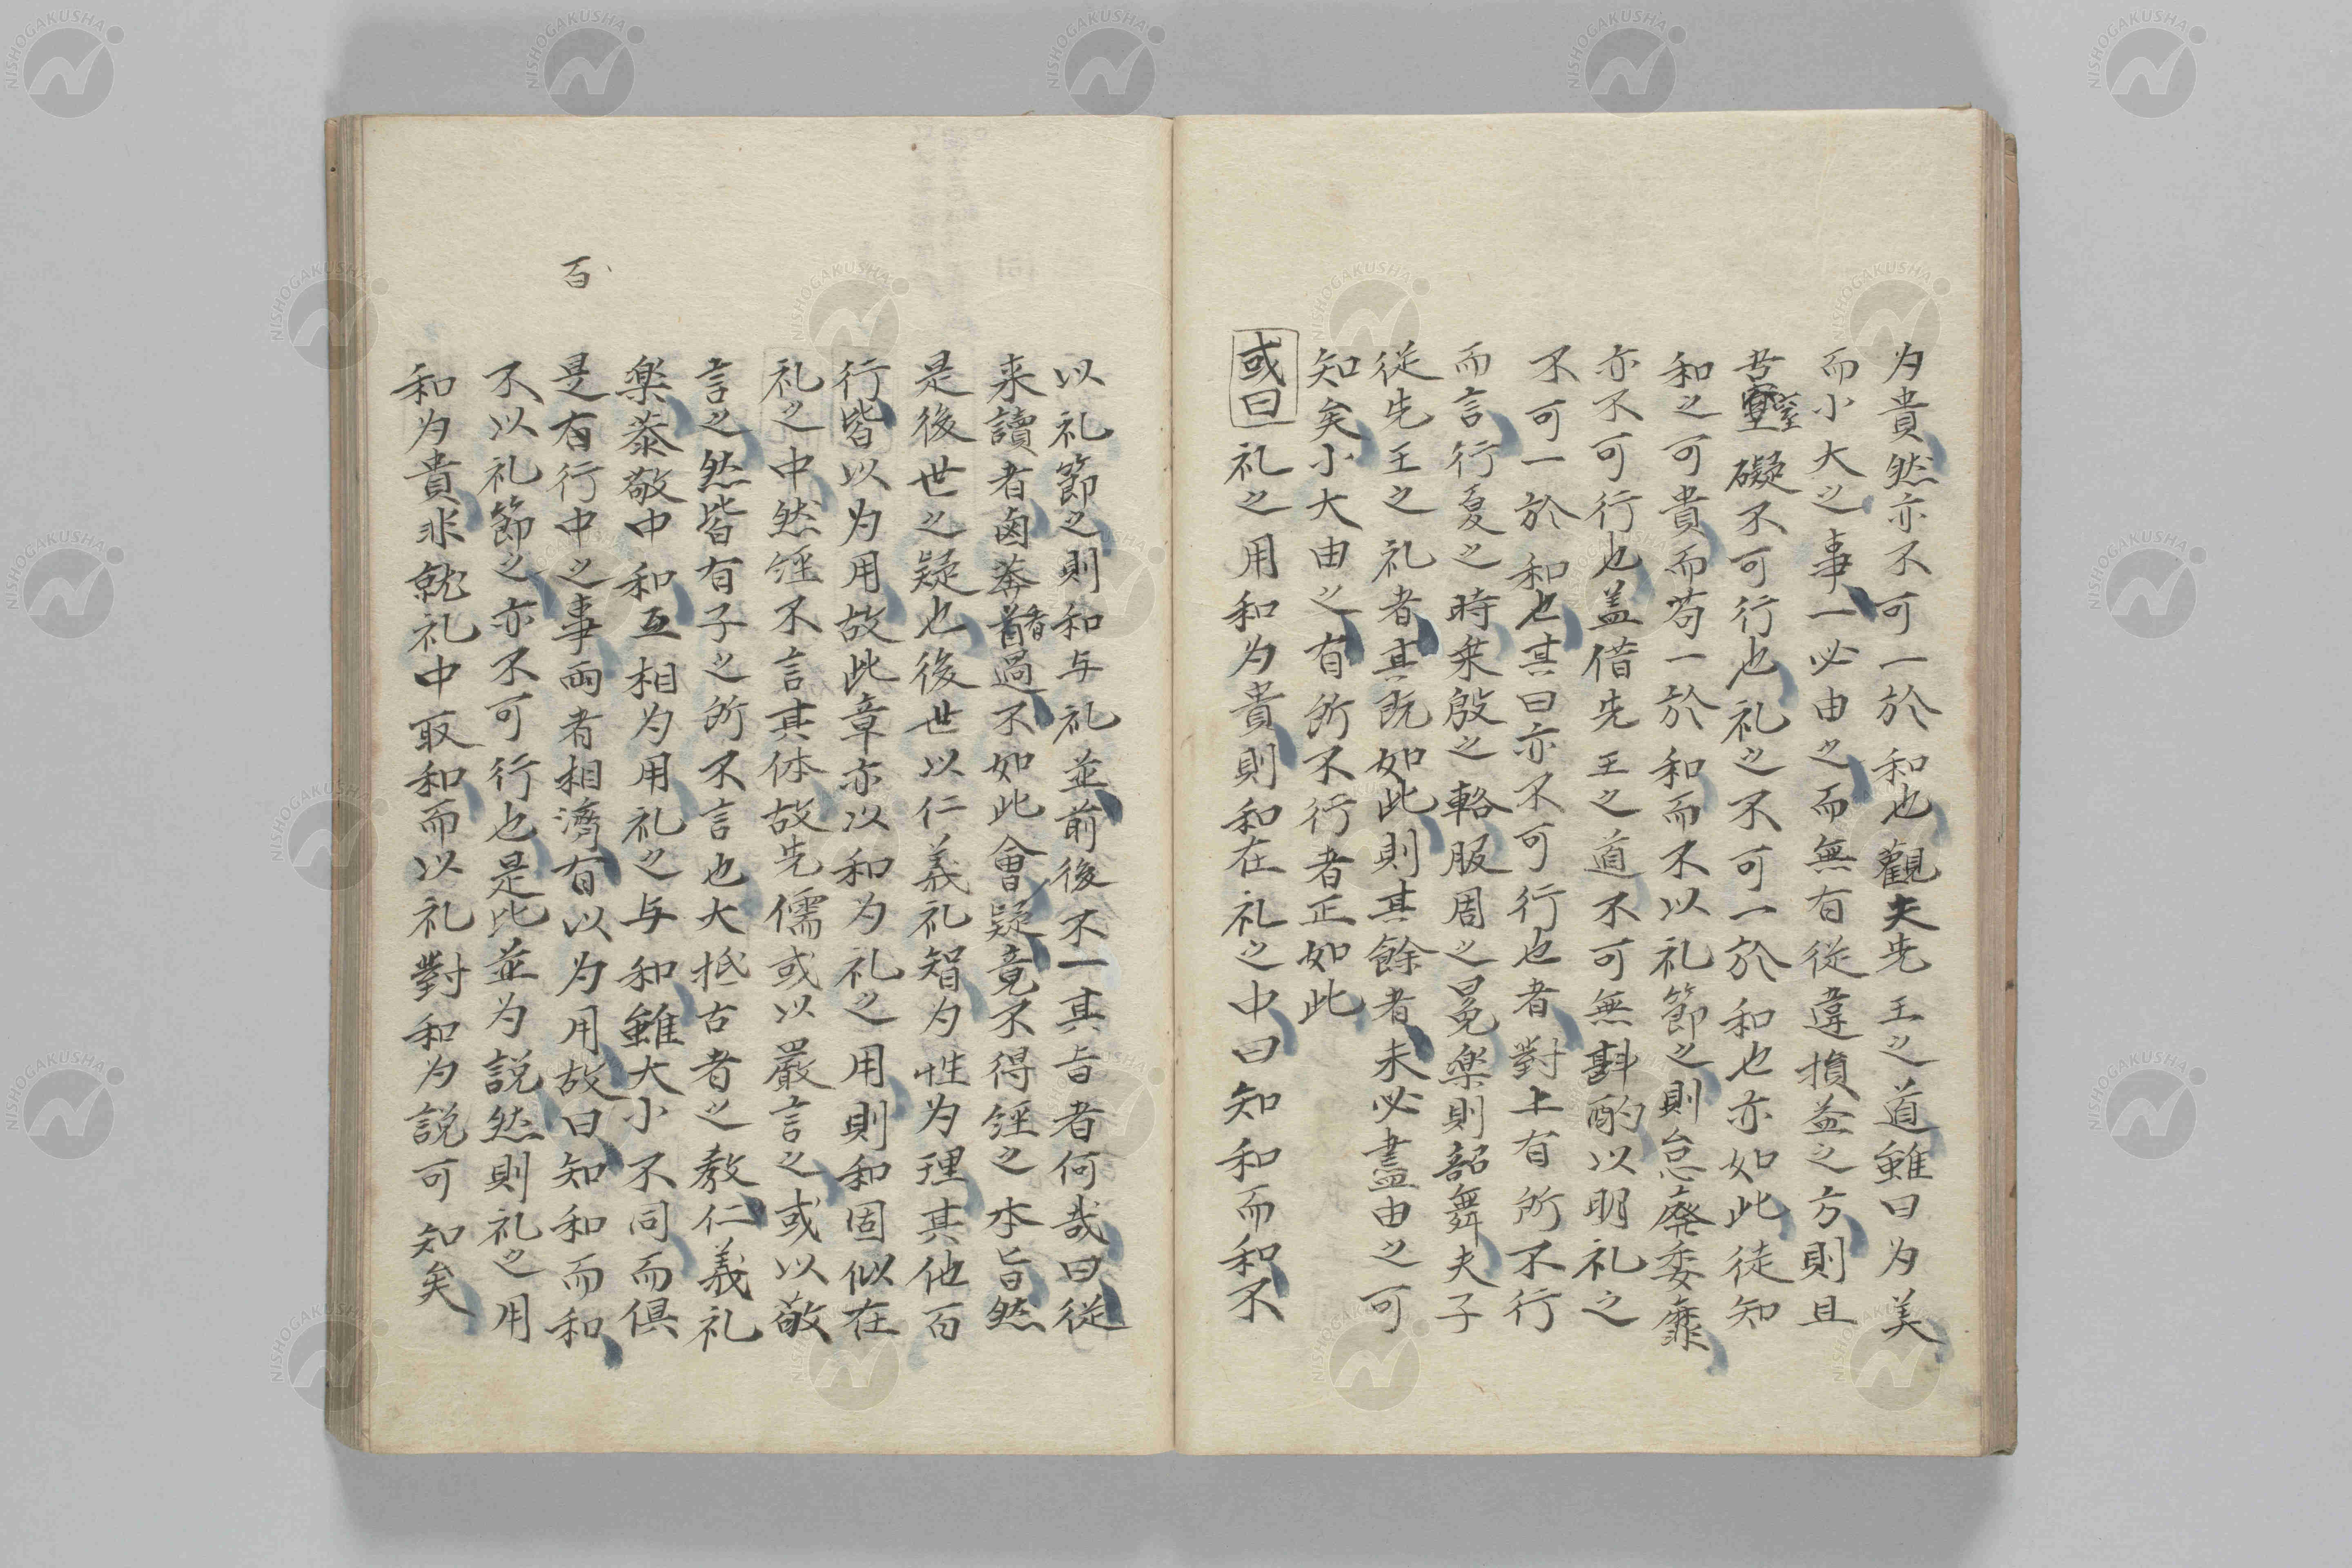 为貴然亦不可一於和也觀夫先王之道雖曰为美
而小大之事一必由之而無有從違損益之方則且
苦窒礙不可行也礼之不可一於和也亦如此徒知
和之可貴而苟一於和而不以礼節之則怠廃委靡
亦不可行也盖借先王之道不可無斟酌以明礼之
不可一於和也其曰亦不可行也者對上有所不行
而言行夏之時乗殷之輅服周之冕楽則韶舞夫子
從先王之礼者其既如此則其餘者未必盡由之可
知矣小大由之有所不行者正如此
或曰礼之用和为貴則和在礼之中曰知和而和不
以礼節之則和与礼並前後不一其旨者何哉曰從
来讀者鹵莽看過不如此會疑竟不得經之本旨然
是後世之疑也後世以仁義礼智为性为理其他百
行皆以为用故此章亦以和为礼之用則和固似在
礼之中然經不言其体故先儒或以嚴言之或以敬
言之然皆有子之所不言也大抵古者之教仁義礼
楽恭敬中和互相为用礼之与和雖大小不同而俱
是有行中之事両者相濟有以为用故曰知和而和
不以礼節之亦不可行也是比並为説然則礼之用
和为貴非就礼中取和而以礼對和为説可知矣
百
NISHOGAKUSHA